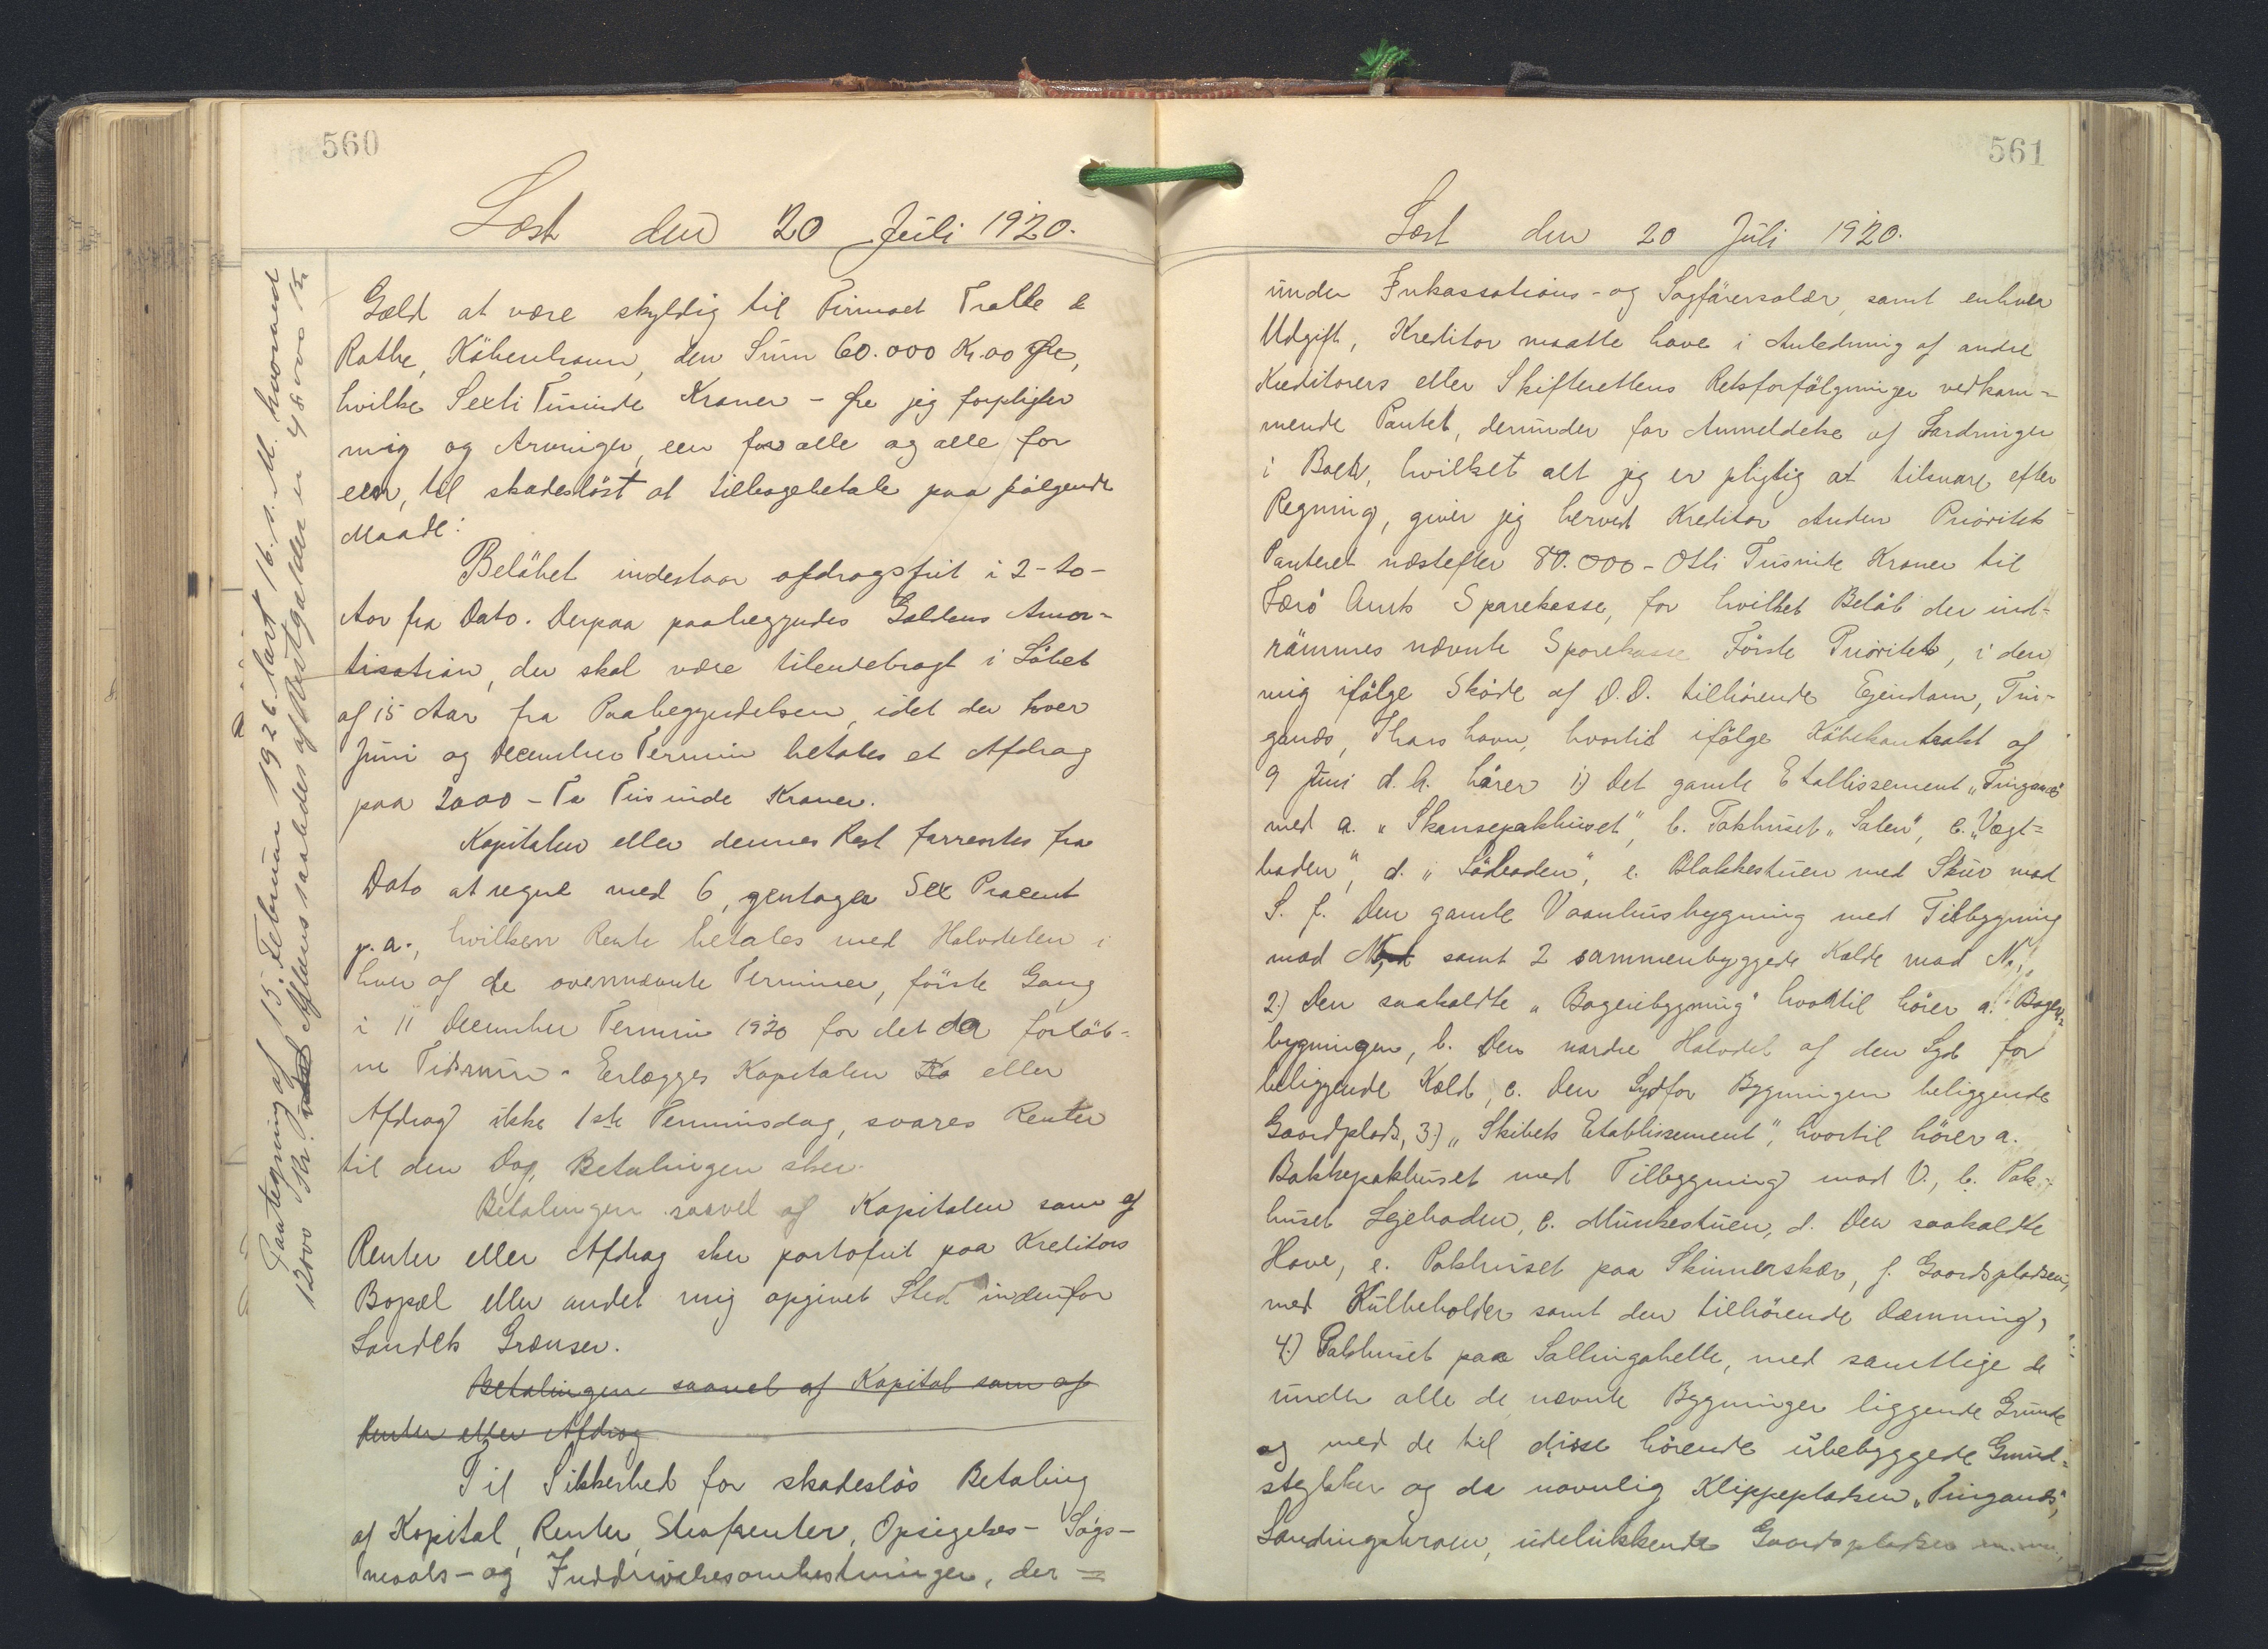 560
Læst den 20 Juli 1920.
Gæld at være skyldig til Firmaet Tralle &
Rothe,Köbenhavn, den Sum 60.000 Kr. 00 Øre,
hvilke Sexti Tusinde Kroner - Øre jeg forpligter
mig og Arvinger, een for alle og alle for
een, til skadeslöst at tilbagebetale paa fölgende
Maade:
Belöbet indestaar afdragsfrit i 2 - to -
Aar fra Dato. Derpaa paabegyndes Gældens Amor-
tisation, der skal være tilendebragt i Löbet
af 15 Aar fra Paabegyndelsen, idet der hver
Juni og December Termin betales et Afdrag
paa 2000 - To Tusinde Kroner.
Kapitalen eller dennes Rest forrentes fra
Dato at regne med 6, gentager Sex Procent
p. a., hvilken Rente betales med Halvdelen i
hver af de ovennævnte Terminer, förste Gang
i 11 December Termin 1920 for det da forlöb-
ne Tidsrum. Erlægges Kapitalen Ka eller
Afdrag ikke 1ste Terminsdag, svares Renter
til den Dag, Betalingen sker.
Betalingen saavel af Kapitalen som af
Renter eller Afdrag sker portofrit paa Kreditors
Bopæl eller andet mig opgivet Sted indenfor
Landets Grænser.
Betalingen saavel af Kapital som af
Renter eller Afdrag
Til Sikkerhed for skadeslös Betaling
af Kapital, Renter, Strafrenter, Opsigelses- Sögs-
maals- og Inddrivelsesomkostninger, der =
Paategning af 15. Februar 1926 læst 16. s. M. hvorved
12000 Kr. ved Aflæns saaledes af Restgælden er 48000 Kr
561
Læst den 20 Juli 1920.
under Inkassations- og Sagförersalær, samt enhver
Udgift, Kreditor maatte have i Anledning af andre
Kreditorers eller Skifterettens Retsforfölgninger vedkom=
mende Pantet, derunder for Anmeldelse af Fordringer
i Boet, hvilket alt jeg er pligtig at tilsvare efter
Regning, giver jeg herved Kreditor Anden Prioritets
Panteret næstefter 80.000 - Otti Tusinde Kroner til
Færö Amts Sparekasse, for hvilket Belöb der ind=
römmes nævnte Sparekasse Förste Prioritet, i den
mig ifölge Sköde af D.D. tilhörende Ejendom, Tin-
ganæs, Thorshavn, hvortil ifölge Köbekontrakt af
9 Juni d. A. hörer 1) Det gamle Etablissement "Tinganæs"
med a. "Skansepakhuset", b. Pakhuset "Salen", c. "Vægt=
boden", d. "Södboden", e. Blokkestuen med Skur mod
S. f. Den gamle Vaanhusbygning med Tilbygning
mod N, samt 2 sammenbyggede Kælde mod N.,
2) Den saakaldte "Bageribygning" hvortil hörer a. Bageri=
bygningen, b. Den nordre Halvdel af den Syd for
beliggende Kæld, c. Den Sydfor Bygningen beliggende
Gaardplads, 3) "Skibets Etablissement", hvortil hörer a.
Bakkepakhuset med Tilbygning mod V., b. Pak-
huset Lejeboden, c. Munkestuen, d. Den saakaldte
Have, e. Pakhuset paa Skinnerskær, f. Gaardspladsen,
med Kulbeholder samt den tilhörende Dæmning,
4) Pakhuset paa Sallingahelle, med samtlige de
under alle de nævnte Bygninger liggende Grunde
og med de til disse hörende ubebyggede Grund=
stykker og da navnlig Klippepladsen "Tinganæs",
Landingsbroen, udelukkende Gaardspladsen